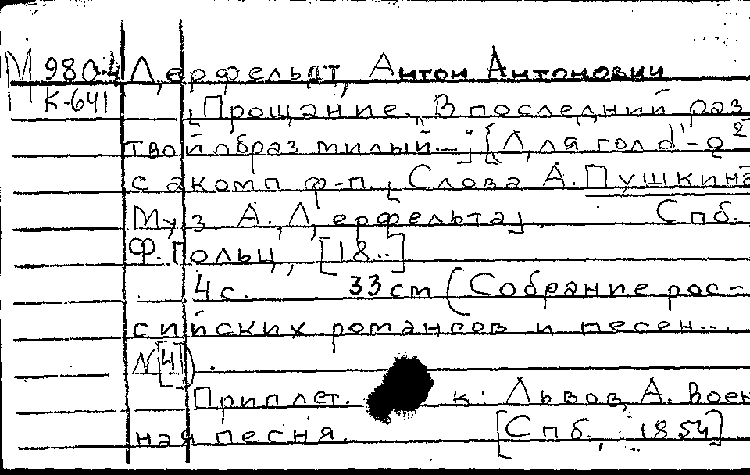 М 980-4 Дерфельдт, Антон Антонович
К-641 [Прощание. „В последний раз
твой образ милый–"] [Для гол d'-g²
с акомп ф-п. [Слова А. Пушкина
Муз А. Дерфельта]. Спб.
Ф. Гольц, [18..]
4 с. 33 cm (Собрание рос-
сийских романсов и песен...
N[4]).
Приплет. к: Львов, А. Воен
ная песня. [Спб., 1854]